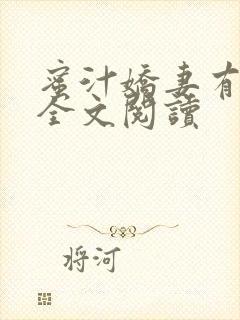 蜜汁嬌妻有
全文閱讀
将河